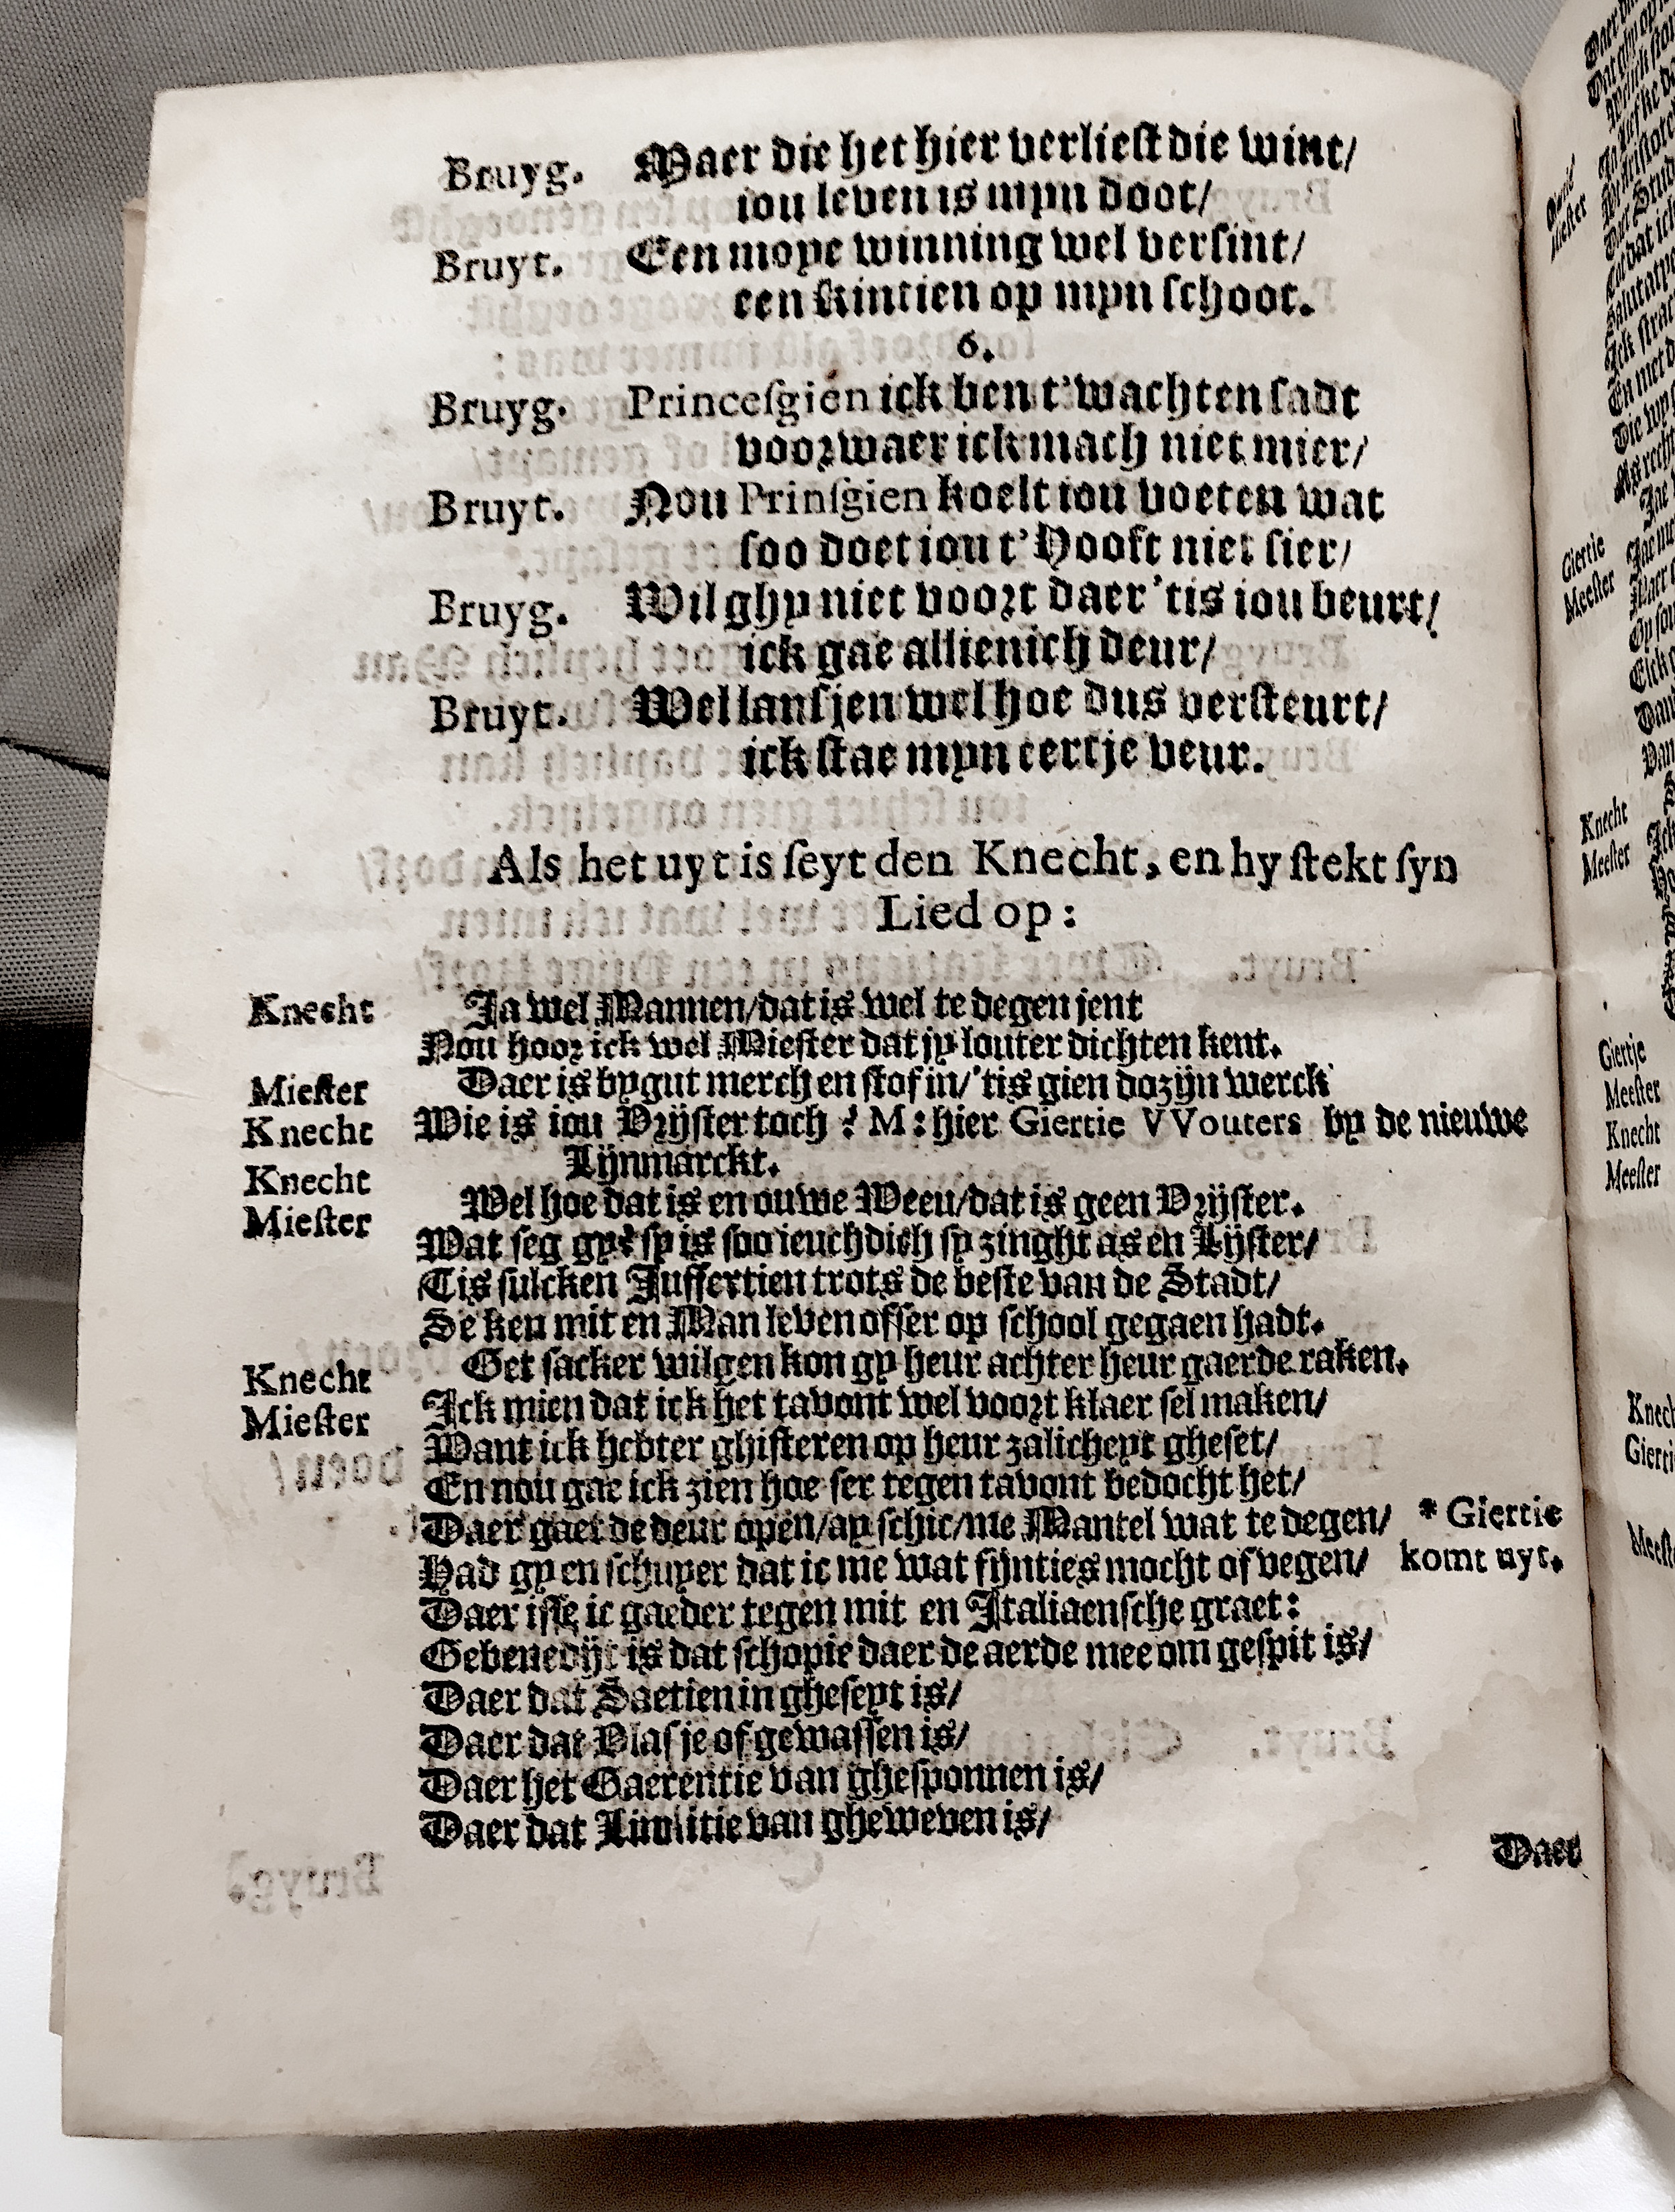 Bruyg. Maer die het hier verliest die wint/
iou leven is myn doot/
Bruyt. Een moye winning wel versint/
een kintien op myn schoot.
6.
Bruyg. Princesgien ick ben t'wachten sadt
voorwaer ick mach niet mier/
Bruyt. Nou Prinsgien koelt iou voeten wat
soo doet iou t'Hooft niet sier/
Bruyg. Wil ghy niet voort daer 'tis iou beurt/
ick gae allienich deur/
Bruyt. Wel lansjen wel hoe dus versteurt/
ick stae myn eertje veur.
Als het uyt is seyt den Knecht, en hy stekt syn
Lied op:
Knecht Ja wel Mannen/dat is wel te degen jent
Nou hoor ick wel Miester dat jy louter dichten kent.
Miester Daer is by gut merch en stof in/'tis gien dozijn werck
Knecht Wie is iou Vrijster toch? M: hier Giertie VVouters by de nieuwe
Lijnmarckt.
Knecht Wel hoe dat is en ouwe Weeu/dat is geen Vrijster.
Miester Wat seg gy? sy is soo ieuchdich sy zinght as en Lijster/
Tis sulcken Juffertien trots de beste van de Stadt/
Se ken mit en Man leven ofser op school gegaen hadt.
Knecht Get sacker wilgen kon gy heur achter heur gaerde raken.
Miester Ick mien dat ick het tavont wel voort klaer sel maken/
Want ick hebter ghisteren op heur zalicheyt gheset/
En nou gae ick zien hoe ser tegen tavont bedocht het/
Daer gaet de deur open/ay schic/me Mantel wat te degen/ * Giertie
Had gy en schuyer dat ic me wat fijnties mocht of vegen/ komt uyt.
Daer isse ic gaeder tegen mit en Italiaensche graet:
Gebenedijt is dat schopie daer de aerde mee om gespit is/
Daer dat Saetien in gheseyt is/
Daer dat Vlasje of gewassen is/
Daer het Gaerentie van ghesponnen is/
Daer dat van gheweven is/
Daer